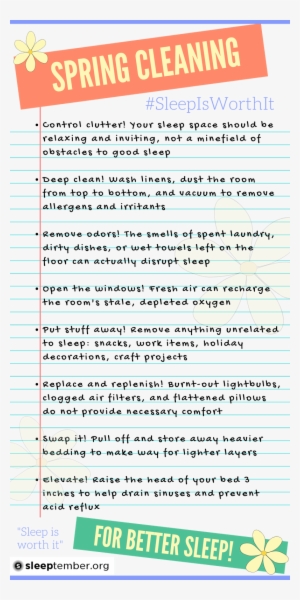 SPRING CLEANING
#SleepIsWorthIt
• Control clutter! Your sleep space should be
relaxing and inviting, not a minefield of
obstacles to good sleep
• Deep clean! Wash linens, dust the room
from top to bottom, and vacuum to remove
allergens and irritants
• Remove odors! The smells of spent laundry,
dirty dishes, or wet towels left on the
floor can actually disrupt sleep
• Open the windows! Fresh air can recharge
the room's stale, depleted oxygen
• Put stuff away! Remove anything unrelated
to sleep: snacks, work items, holiday
decorations, craft projects
• Replace and replenish! Burnt-out lightbulbs,
clogged air filters, and flattened pillows
do not provide necessary comfort
• Swap it! Pull off and store away heavier
bedding to make way for lighter layers
• Elevate! Raise the head of your bed 3
inches to help drain sinuses and prevent
acid reflux
"Sleep is
worth it"
FOR BETTER SLEEP!
sleeptember.org